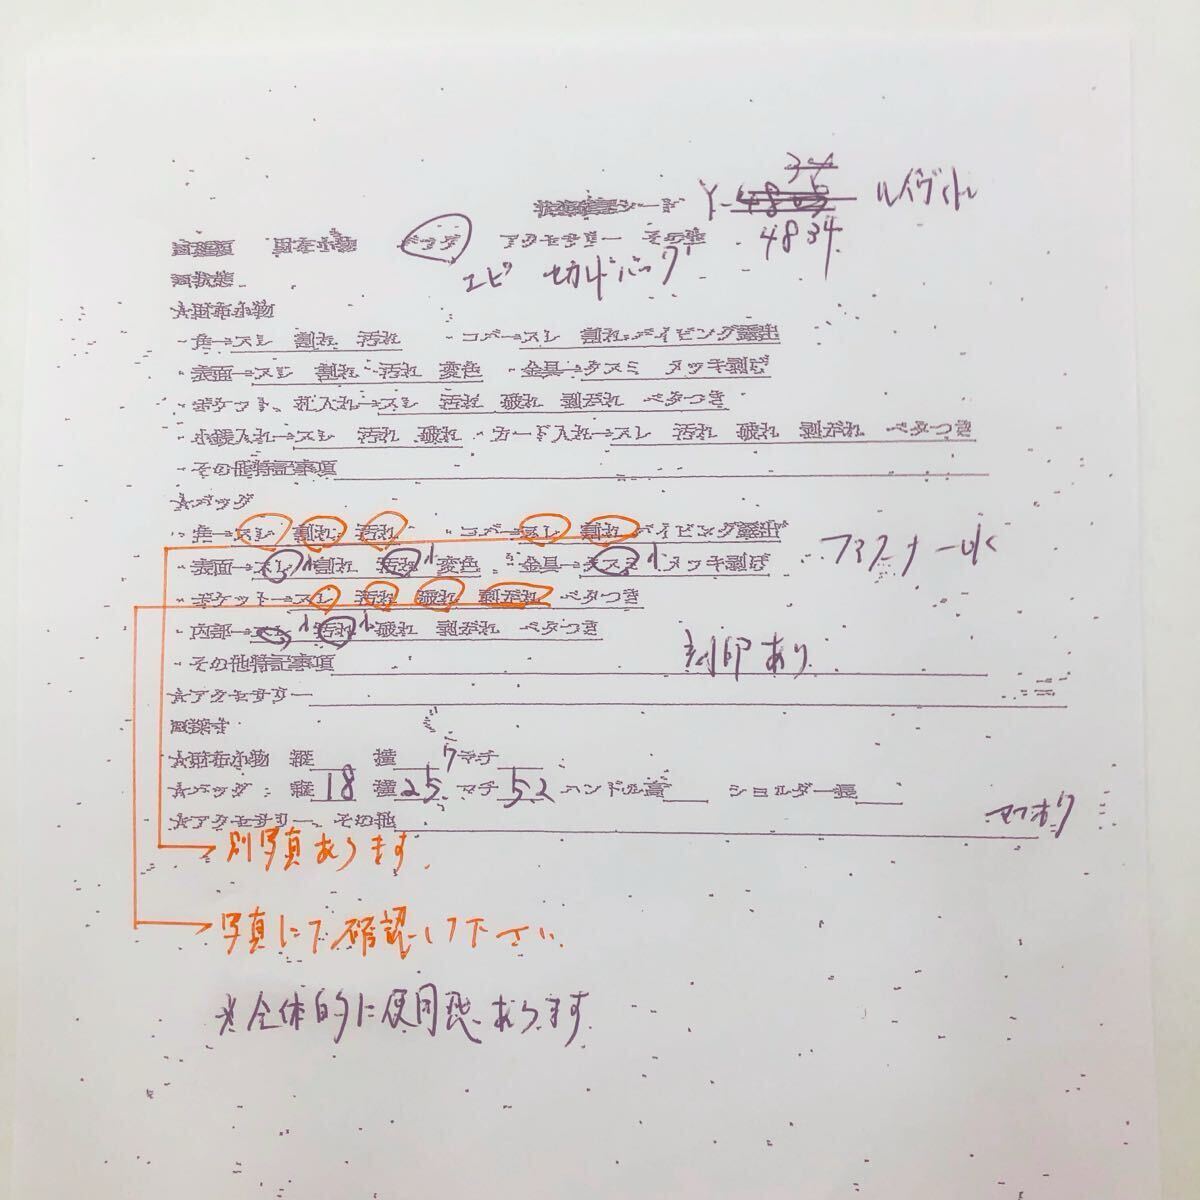 状態確認シート Y-4834 ルイヴィトン
財布小物 バッグ アクセサリー その他
エピ セカンドバッグ
状態
★財布小物
・角→スレ 割れ 汚れ ・コバ→スレ 割れ パイピング露出
・表面→スレ 割れ 汚れ 変色 ・金具→クスミ メッキ剥げ
・ポケット、札入れ→スレ 汚れ 破れ 剥がれ ベタつき
・小銭入れ→スレ 汚れ 破れ ・カード入れ→スレ 汚れ 破れ 剥がれ ベタつき
・その他特記事項
★バッグ
・角→スレ 割れ 汚れ ・コバ→スレ 割れ パイピング露出
・表面→スレ小 割れ 汚れ小 変色 ・金具→クスミ小 メッキ剥げ ファスナー
・ポケット→スレ 汚れ 破れ 剥がれ ベタつき
・内部→スレ小 汚れ小 破れ 剥がれ ベタつき
・その他特記事項 刻印あり
★アクセサリー
採寸
★財布小物 縦 横 マチ
★バッグ: 縦18 横25 マチ5.2 ハンドル高 ショルダー長
★アクセサリー、その他
別写真あります。
写真にて確認して下さい。
※全体的に使用感あります